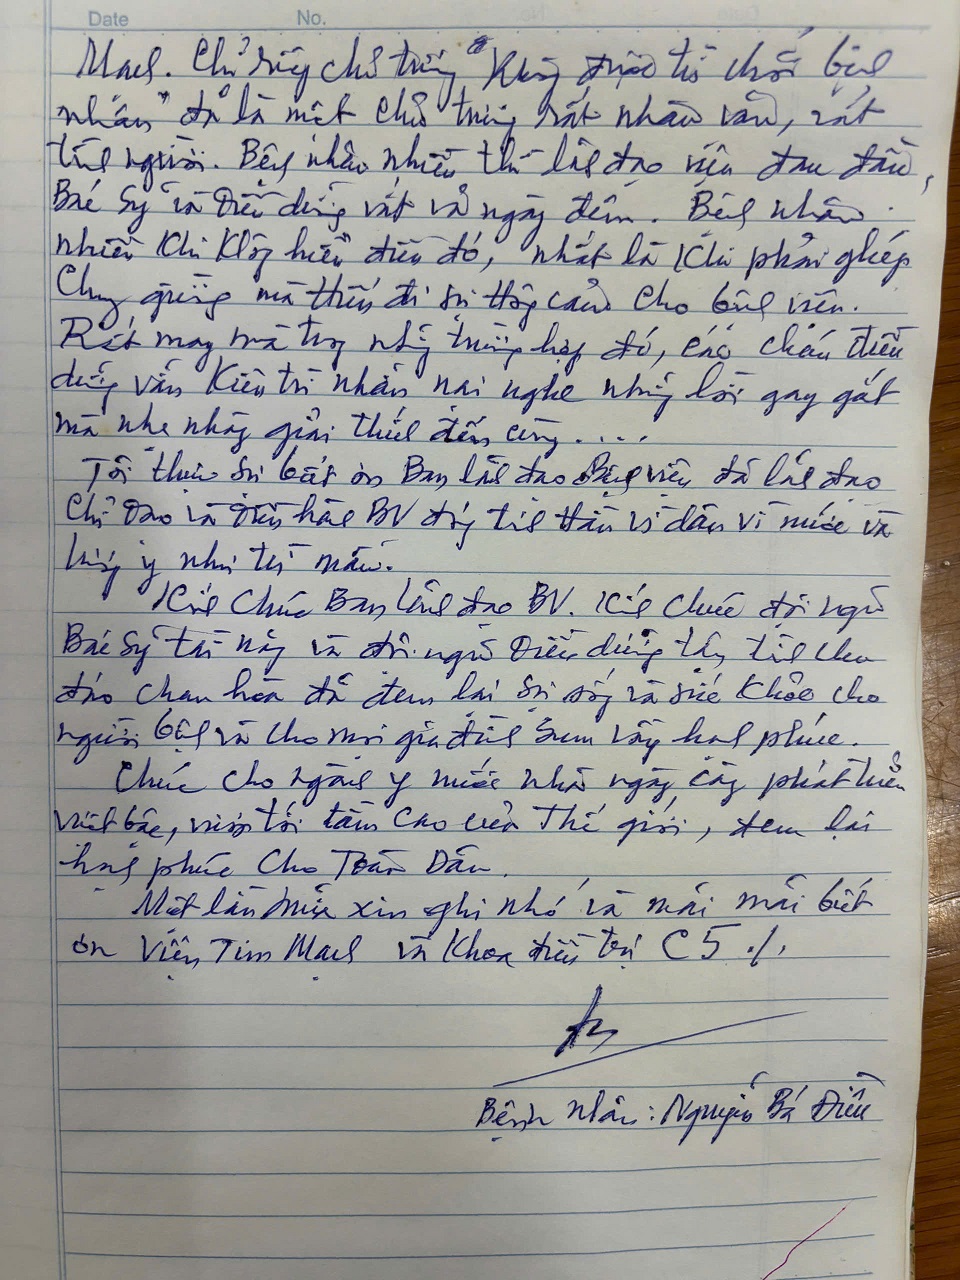 Date No.
Mạch. Chỉ riêng chủ trương "Không được từ chối bệnh
nhân" đã là một chủ trương rất nhân văn, rất
tình người. Bệnh nhân nhiều thì lãnh đạo viện đau đầu,
Bác sỹ và Điều dưỡng vất vả ngày đêm. Bệnh nhân
nhiều khi không hiểu điều đó, nhất là khi phải ghép
Chung giường mà thiếu đi sự thông cảm cho bệnh viện.
Rất may mà trong những trường hợp đó, các cháu điều
dưỡng vẫn kiên trì nhẫn nại nghe những lời gay gắt
mà nhẹ nhàng giải thích đến cùng....
Tôi thực sự biết ơn Ban lãnh đạo Bệnh viện đã lãnh đạo
Chỉ đạo và điều hành BV đúng tinh thần vì dân vì nước và
lương y như từ mẫu.
Kính Chúc Ban lãnh đạo BV. Kính chúc đội ngũ
Bác sỹ tài năng và đội ngũ Điều dưỡng tận tình chu
đáo chan hòa đã đem lại sự sống và sức khỏe cho
người bệnh và cho mọi gia đình sum vầy hạnh phúc.
Chúc cho ngành y nước nhà ngày càng phát triển
vượt bậc, vươn tới tầm cao của Thế giới, đem lại
hạnh phúc cho Toàn Dân.
Một lần nữa xin ghi nhớ và mãi mãi biết
ơn Viện Tim Mạch và Khoa điều trị C5 ./.
Bệnh nhân: Nguyễn Bá Điều